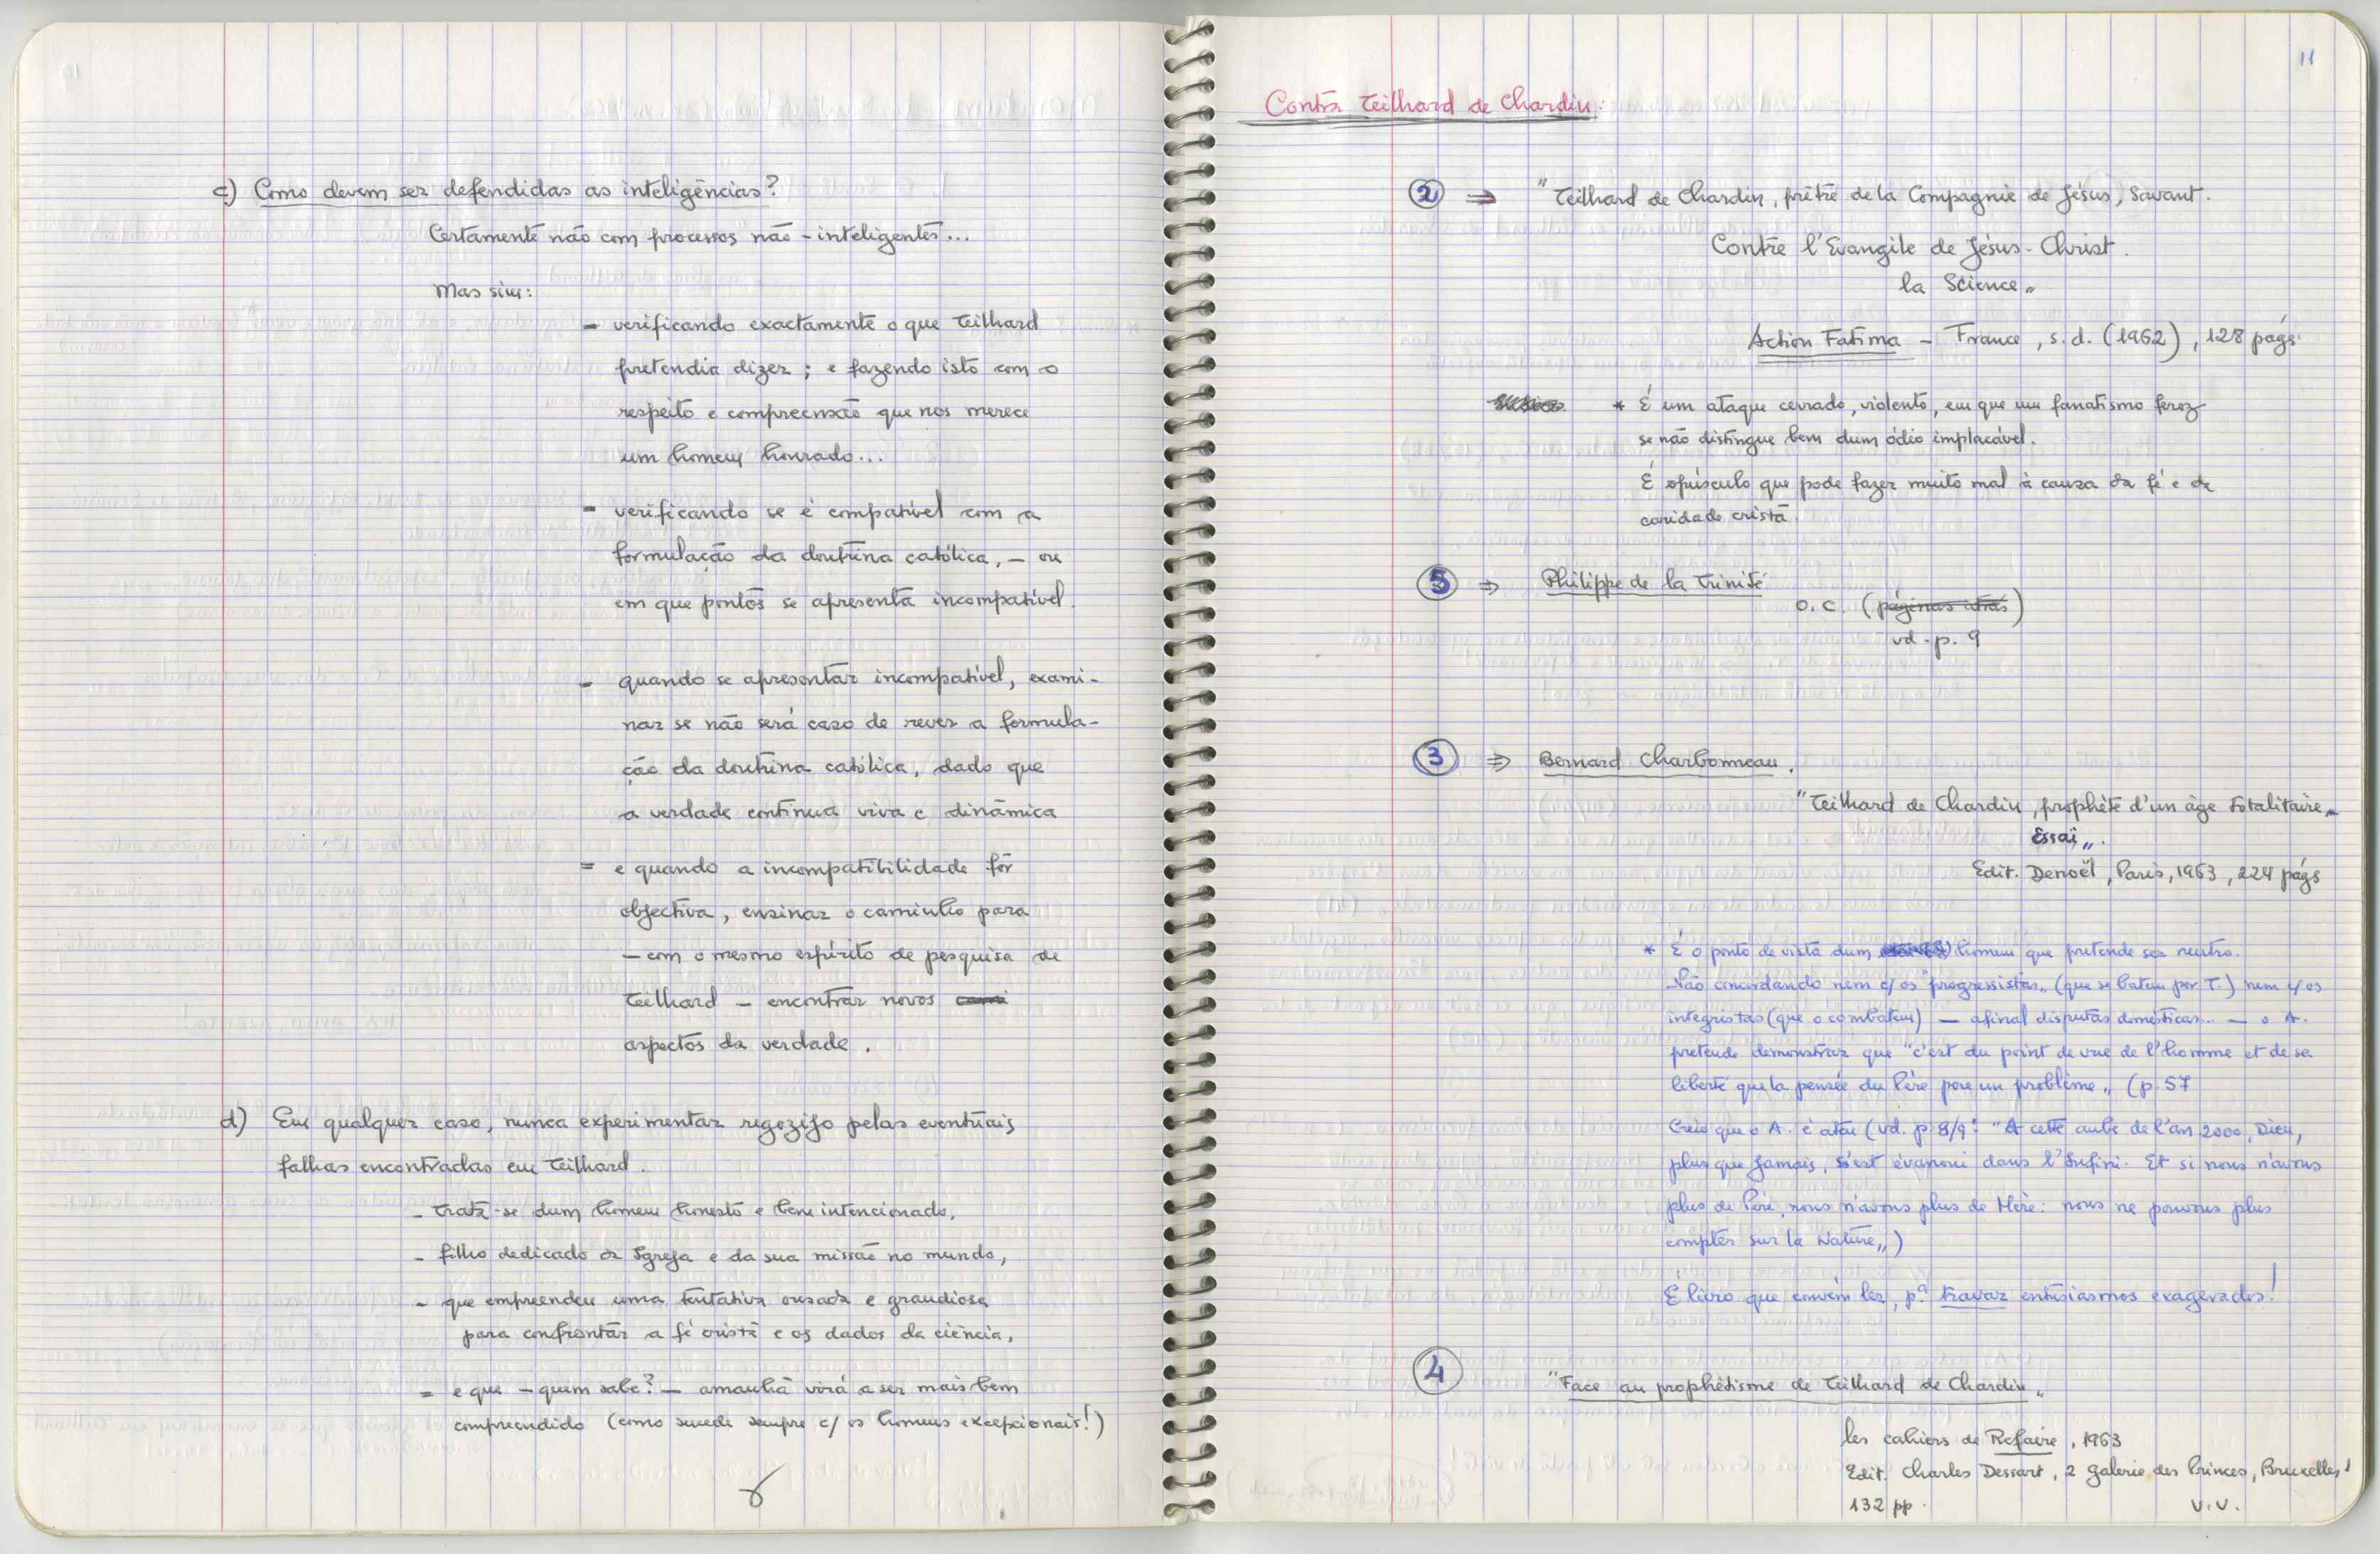 c) Como devem ser defendidas as inteligências?
Certamente não com processos não-inteligentes...
Mas sim:
- verificando exactamente o que Teilhard
pretendia dizer; e fazendo isto com o
respeito e compreensão que nos merece
um homem honrado...
- verificando se é compatível com a
formulação da doutrina católica, - ou
em que pontos se apresenta incompatível.
- quando se apresentar incompatível, exami-
nar se não será caso de rever a formula-
ção da doutrina católica, dado que
a verdade continua viva e dinâmica
- e quando a incompatibilidade fôr
objectiva, ensinar o caminho para
- com o mesmo espírito de pesquisa de
Teilhard - encontrar novos
aspectos da verdade.
d) Em qualquer caso, nunca experimentar regozijo pelas eventuais
falhas encontradas em Teilhard.
- trata-se dum homem honesto e bem intencionado,
- filho dedicado da Igreja e da sua missão no mundo,
- que empreendeu uma tentativa ousada e grandiosa
para confrontar a fé cristã e os dados da ciência,
- e que - quem sabe? - amanhã virá a ser mais bem
compreendido (como sucede sempre c/ os homens excepcionais!)
11
Contra Teilhard de Chardin:
2 ⇒ "Teilhard de Chardin, prêtre de la Compagnie de Jésus, Savant.
Contre l'Evangile de Jésus-Christ.
la Science"
Action Fatima - France, s.d. (1962), 128 págs.
* É um ataque cerrado, violento, em que um fanatismo feroz
se não distingue bem dum ódio implacável.
É opúsculo que pode fazer muito mal à causa da fé e da
caridade cristã.
5 ⇒ Philippe de la Trinité
o.c. (páginas atrás)
vd. p. 9
3 ⇒ Bernard Charbonneau.
"Teilhard de Chardin, prophète d'un âge totalitaire.
Essai".
Edit. Denoël, Paris, 1963, 224 págs
* É o ponto de vista dum homem que pretende ser neutro.
Não concordando nem c/ os "progressistas" (que se batem por T.) nem c/ os
integristas (que o combatem) - afinal disputas domésticas... - o A.
pretende demonstrar que "c'est du point de vue de l'homme et de sa
liberté que la pensée du Père pose un problème" (p. 57
Creio que o A. é ateu (vd. p. 8/9: "A cette aube de l'an 2000, Dieu,
plus que jamais, s'est évanoui dans l'Infini. Et si nous n'avons
plus de Père, nous n'avons plus de Mère: nous ne pouvons plus
compter sur la Nature")
É livro que convém ler, pª travar entusiasmos exagerados!
4 "Face au prophétisme de Teilhard de Chardin"
les cahiers de Refaire, 1963
Edit. Charles Dessart, 2 Galerie des Princes, Bruxelles 1
132 pp. v.v.